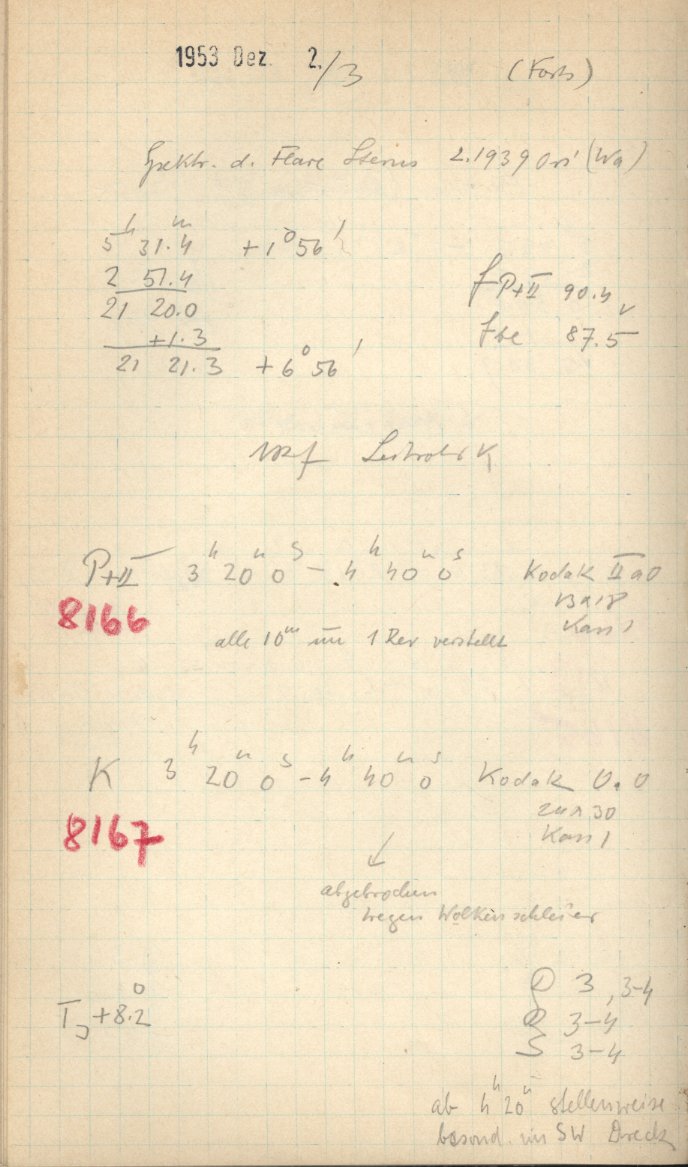 1953 Dez. 2./3 (Forts)
Spektr. d. Flare Sterns 2.1939 Ori (Wa)
5h 31.4m +1° 56'
2 51.4
21 20.0
+1.3
21 21.3 +6° 56'
f P+II 90.4
f be 87.5
Leitrohr K
P+II 3h 20m 0s – 4h 40m 0s Kodak IIa0
13x18
Kass 1
8166
alle 10m um 1 Rev verstellt
K 3h 20m 0s – 4h 40m 0s Kodak 0a0
24x30
Kass 1
8167
↙
abgebrochen
wegen Wolkenschleier
TJ +8.2°
D 3, 3–4
R 3–4
S 3–4
ab 4h 20m stellenweise
besond. im SW Dreck